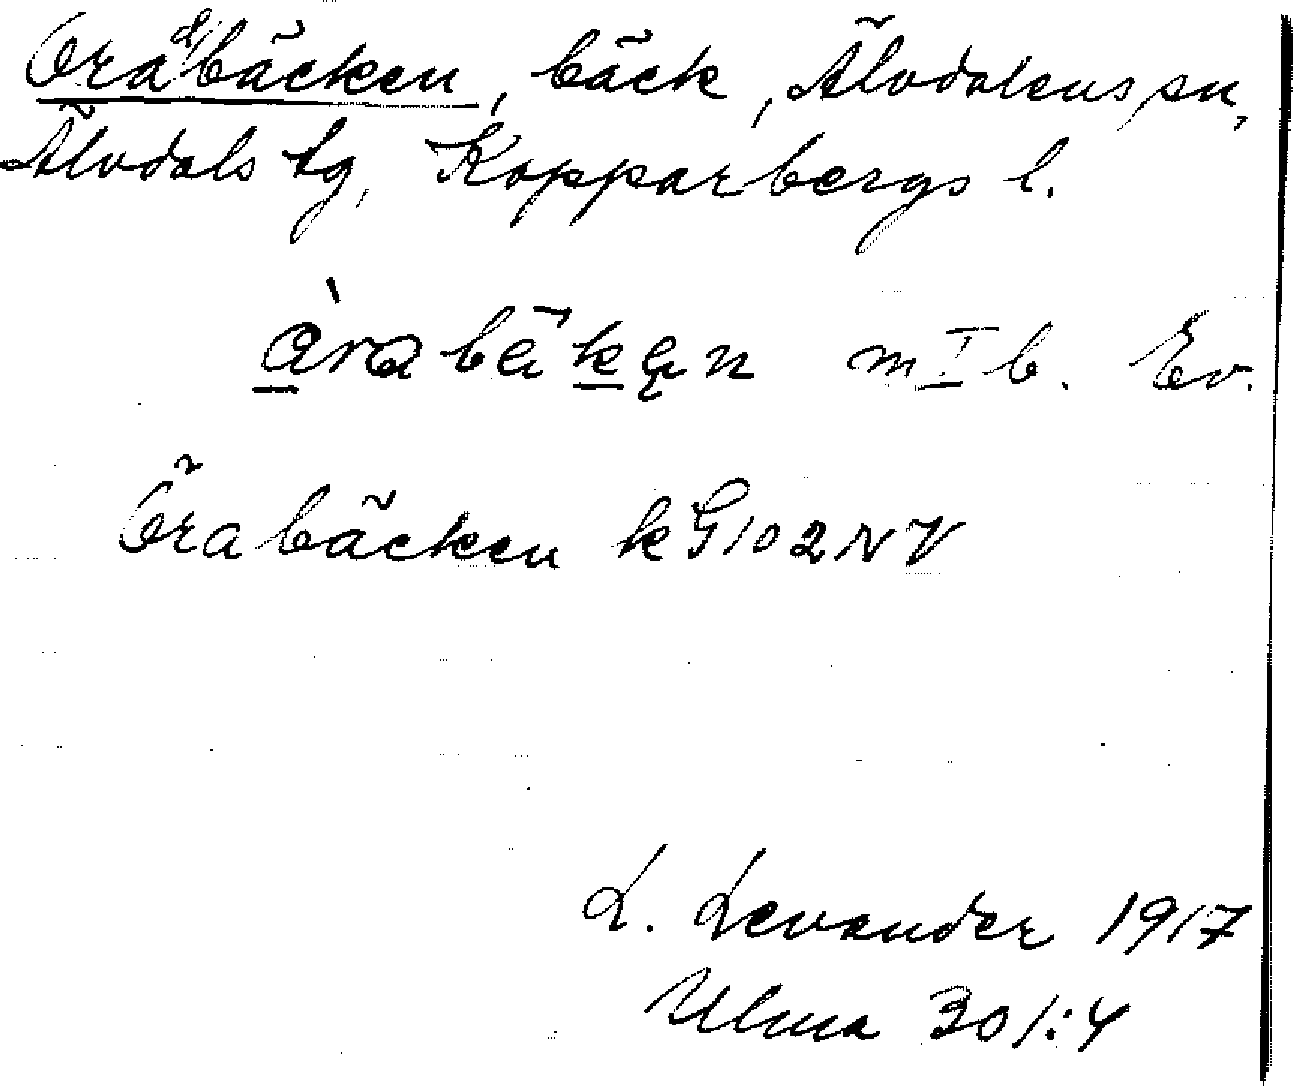 Öraåbäcken, bäck, Älvdalens sn,
Älvdals tg, Kopparbergs l.
àrabäkan mIb. Ev.
Örabäcken kG102NV
L. Levander 1917
Ulma 301:4